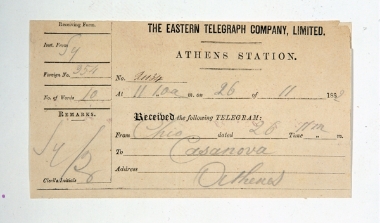 Receiving Form.
Inst. From Sy
Foreign No. 354
No. of Words 10
REMARKS.
Clerk's Initials
THE EASTERN TELEGRAPH COMPANY, LIMITED.
ATHENS STATION.
No.
At 11 10a m. on 26 of 11 188
Received the following TELEGRAM:
From Chio dated 26 Time 11 m
To Casanova
Address Athenes